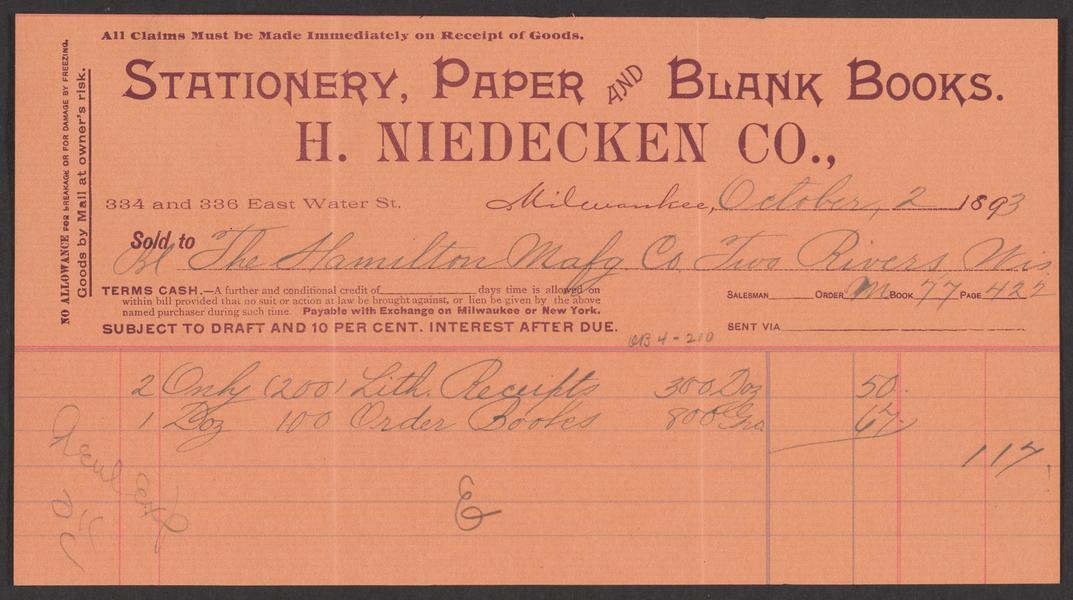 All Claims Must be Made Immediately on Receipt of Goods.
NO ALLOWANCE FOR BREAKAGE OR FOR DAMAGE BY FREEZING.
Goods by Mail at owner's risk.
STATIONERY, PAPER AND BLANK BOOKS.
H. NIEDECKEN CO.,
334 and 336 East Water St. Milwaukee, October, 2 1893
Sold to The Hamilton Mafg. Co Two Rivers Wis
TERMS CASH.—A further and conditional credit of days time is allowed on
within bill provided that no suit or action at law be brought against, or lien be given by the above
named purchaser during such time. Payable with Exchange on Milwaukee or New York.
SUBJECT TO DRAFT AND 10 PER CENT. INTEREST AFTER DUE.
SALESMAN ORDER M BOOK 77 PAGE 422
SENT VIA
4-210
2 Only (200) Lith. Receipts 300 Doz 50
1 Doz 100 Order Books 800 Gro 67
117